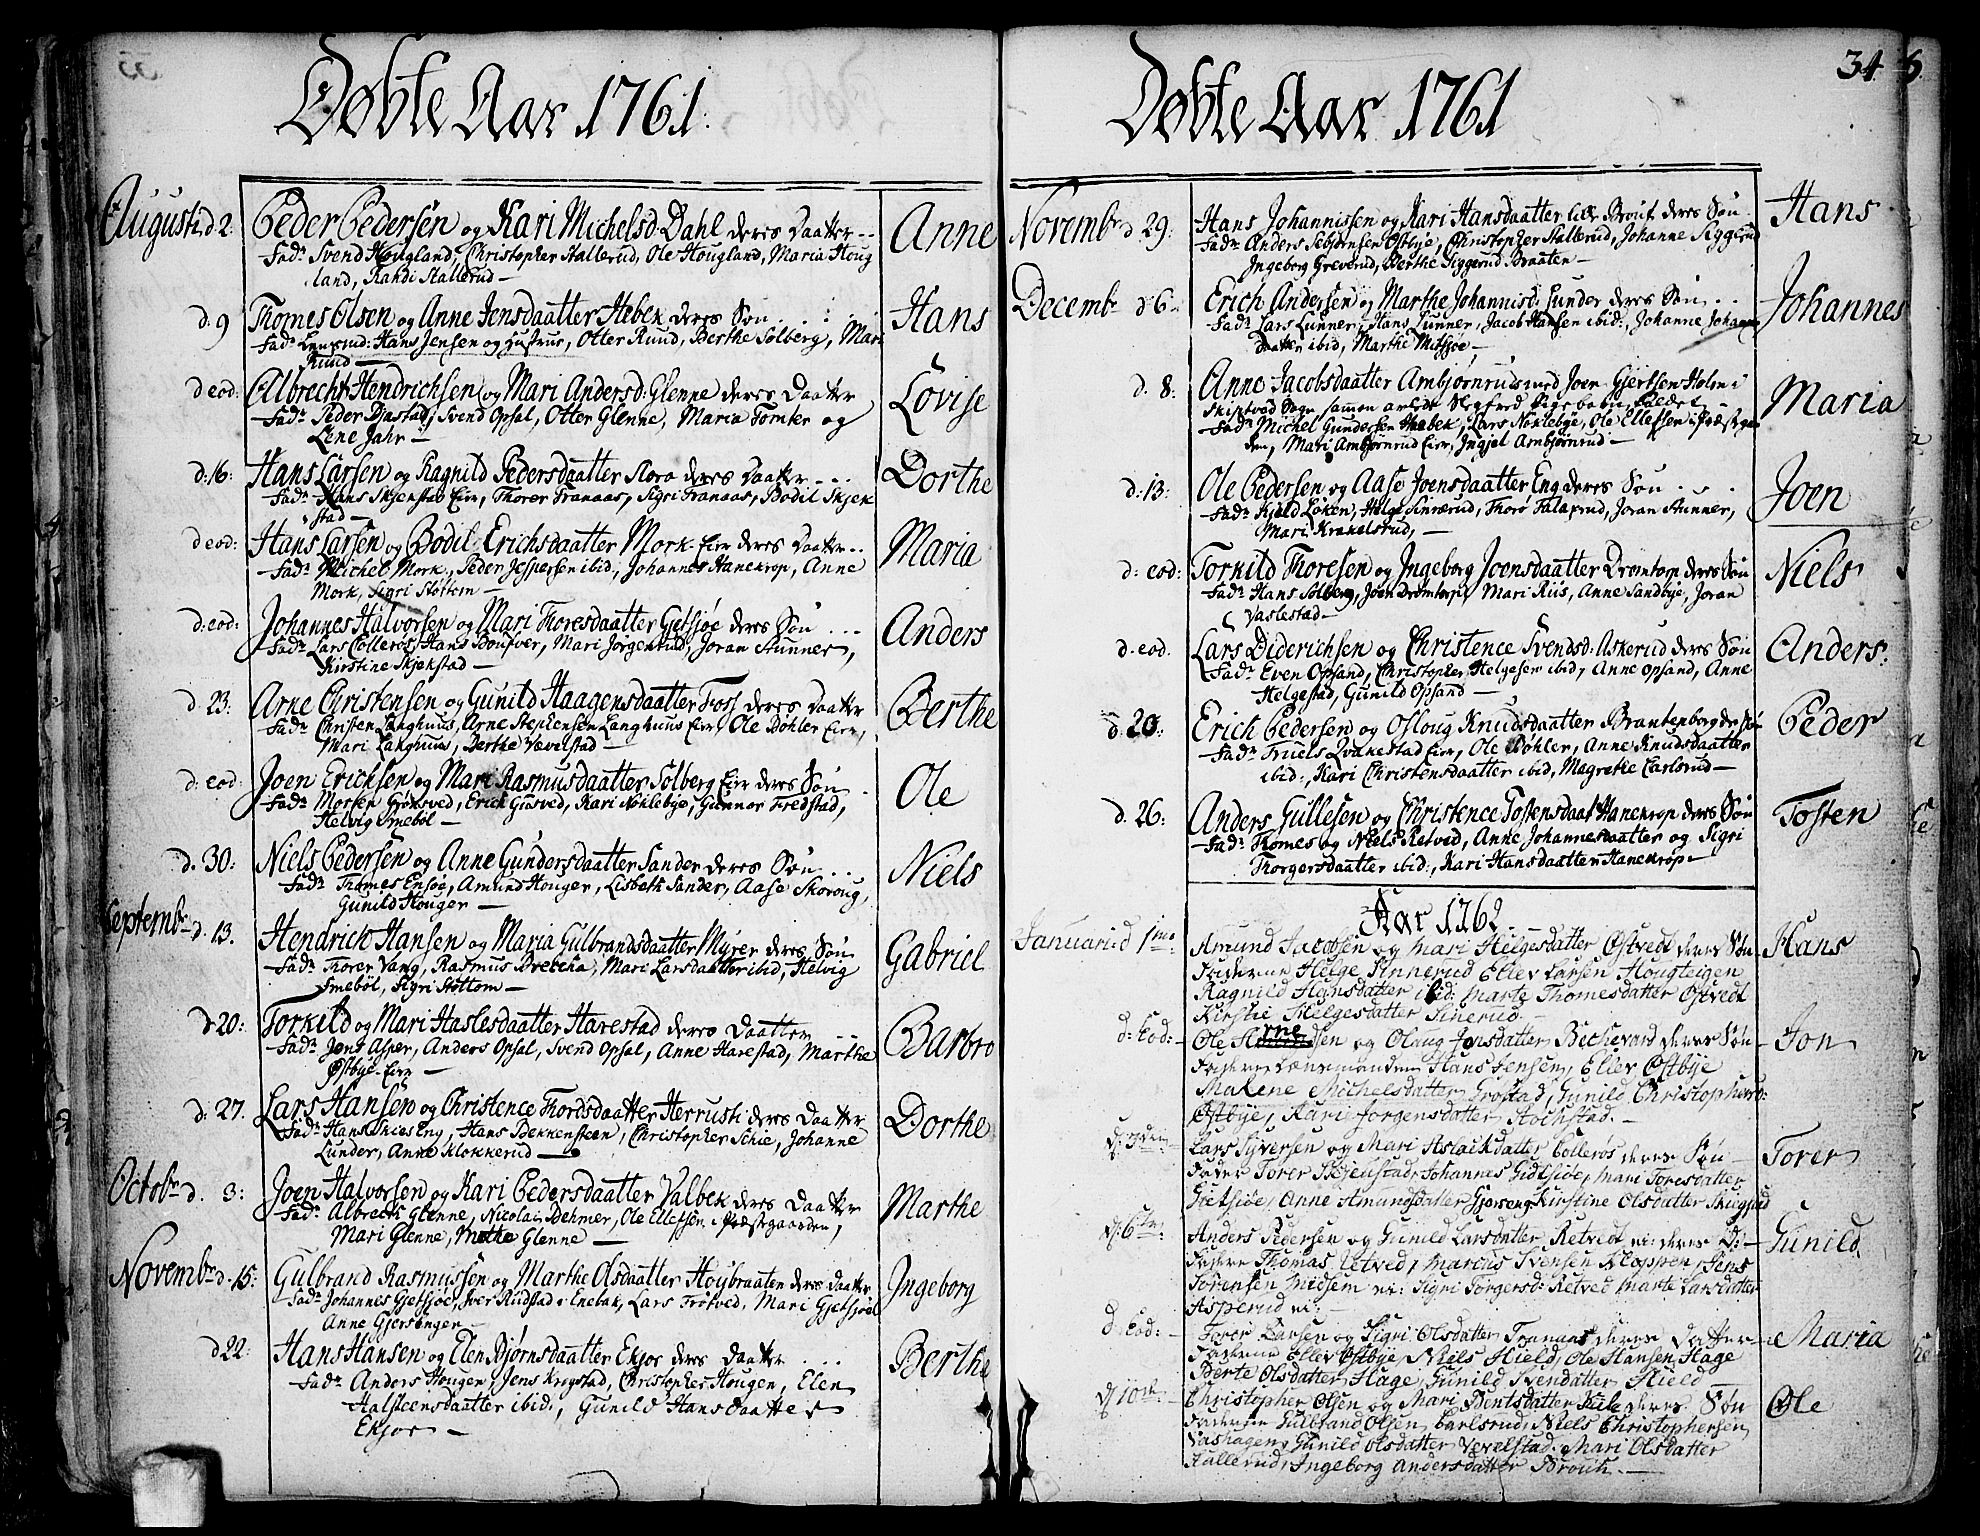 Døbte Aar 1761.
Augusti d 2. Peder Pedersen og Kari Michelsd. Dahl deres Daatter -- Anne
Fadr Svend Hougland, Christopher Stallerud, Ole Hougland, Maria Houg
land, Randi Stallerud —
d. 9 Thomes Olsen og Anne Jensdaatter Hebek deres Søn Hans
Fadr Hans Jensen og Hustrue, Otter Ruud, Berthe Solberg, Mari
Ruud —
d eod: Albrecht Hendrichsen og Mari Andersd. Glenne deres Daatter Lovise
Fadr Peder Diastad, Svend Opsal, Otter Glenne, Maria Tomter og
Lene Jahr —
d. 16: Hans Larsen og Ragnild Pedersdaatter Mora deres Daatter --- Dorthe
Fadr Hans Skjenstad Eier, Thorer Tranaas, Sigri Tranaas, Bodil Skjek
stad —
d eod: Hans Larsen og Bodil Erichsdaatter Mork Eier deres Daatter -- Maria
Fadr Michel Mork, Peder Jespersen ibid, Johannes Hanekrop, Anne
Mork, Sigri Støttom —
d: eod: Johannes Halvorsen og Mari Thoresdaatter Getsjøe deres Søn --- Anders
Fadr Lars Collerøs, Hans Mari Jørgenrud, Joran Stunner,
Kirstine Skjekstad —
d. 23: Arne Christensen og Gunild Haagensdaatter Foss deres Daatter Berthe
Fadr Christen Langhuus, Arne Stephensen Langhuus Eier, Ole Bøhler Eier,
Mari Langhuus, Berthe Vevelstad —
d. eod: Joen Erichsen og Mari Rasmusdaatter Solberg Eier deres Søn Ole
Fadr Morten Grønsved, Erich Grøsved, Kari Noklebye, Gunnor Fredstad,
Helvig Smebøl —
d. 30: Niels Pedersen og Anne Gundersdaatter Sander deres Søn Niels
Fadr Thomes Ensøe, Amund Houger, Lisbeth Sander, Aase Skoroug,
Gunild Houger —
Septembr d. 13. Hendrich Hansen og Maria Gulbrandsdaatter Myrer deres Søn Gabriel
Fadr Thorer Vang, Rasmus Brecha, Mari Larsdaatter ibid, Helvig
Smebøl, Sigri Støttom —
d 20: Torkild og Mari Haslesdaatter Harestad deres Daatter Barbro
Fadr Jens Asper, Anders Opsal, Svend Opsal, Anne Harestad, Marthe
Østbye Eier —
d: 27. Lars Hansen og Christence Thordsdaatter Herrusti deres Daatter Dorthe
Fadr Hans Skies Eng, Hans Bekkensteen, Christopher Schie, Johanne
Lunder, Anne Klokkerud —
Octobr d. 3: Joen Halvorsen og Kari Pedersdaatter Valbek deres Daatter Marthe
Fadr Albrecht Glenne, Nicolai Dehmer, Ole Ellefsen i Præstegaarden,
Mari Glenne, Marthe Glenne —
Novembr d. 15: Gulbrand Rasmussen og Marthe Olsdaatter Høybraaten deres Daatter Ingeborg
Fadr Johannes Gjetsjøe, Iver Rudstad i Enebak, Lars Trøtved, Mari Gjetsjøe
Anne Gjersenger —
d 22: Hans Hansen og Elen Bjørnsdaatter Ekjor deres Daatter Berthe
Fadr Anders Hougen, Jens Krogstad, Christopher Hougen, Elen
Halsteensdaatter ibid:, Gunild Hansdaatter
Ekjor —
34
Døbte Aar 1761
Novembr d. 29: Hans Johannissen og Kari Hansdaatter lille Brout deres Søn Hans
Fadr Anders Sebjørnsen Østbye, Christopher Stallerud, Johanne Siggerud
Ingeborg Greverud, Berthe Siggerud Braaten —
Decembr d 6 Erich Andersen og Marthe Johannisd: Lunder deres Søn -- Johannes
Fadr Lars Lunner, Hans Lunner, Jacob Hansen ibid:, Johanne Johannes
Daatter ibid, Marthe Mitsjøe —
d. 8: Anne Jacobsdaatter Ambjørnrud med Joen Gjertsen Holm i Maria
Skiptved Sogn, sammen avlede Slegfred Pigebarn, kaldet
Fadr Michel Gundersen Hebek, Lars Noklebye, Ole Ellefsen i Præstegaar
den, Mari Ambjørnrud Eier, Ingjel Ambjørnrud —
d: 13: Ole Pedersen og Aase Joensdaatter Eng deres Søn Joen
Fadr Kield Løken, Helge Sinnerud, Thore Falaxrud, Joran Stunner,
Mari Krakelsrud, —
d: eod: Torkild Thoresen og Ingeborg Joensdaatter Drømtorp deres Søn Niels
Fadr Hans Solberg, Joen Drømtorp, Mari Riis, Anne Sandbye, Joran
Vaslestad —
d. eod. Lars Diderichsen og Christence Svendsd: Askerud deres Søn Anders:
Fadr Even Opsand, Christopher Helgesen ibid, Anne Opsand, Anne
Helgestad, Gunild Opsand —
d: 20: Erich Pedersen og Osloug Knudsdaatter Brantenborg der Søn Peder
Fadr Truels Qvakestad Eier, Ole Bøhler, Anne Knudsdaatter
ibid:, Kari Christensdaatter ibid, Magrethe Carlsrud —
d. 26: Anders Gullesen og Christence Tostensdaat Hanekrop deres Søn Tosten
Fadr Thomes og Niels Retved, Anne Johannesdaatter og Sigri
Thorgersdaatter ibid:, Kari Hansdaatter Hanekrop —
Aar 1762
Januarii d 1me Amund Jacobsen og Mari Helgesdatter Østvedt deres Søn Hans
Fadderne Helge Sinnerud Ellev Larsen Hougteigen
Ragnild Hansdatter ibid: Marte Thomesdatter Østvedt
Kirstie Helgesdatter Sinerud. —
d: Eod: Ole Arnesen og Olaug Jonsdatter Bechevard deres Søn Jon
Fadderne Lænsmanden Hans Jensen, Ellev Østbye
Malene Michelsdatter Grøstad, Gunild Christophersd:
Østbye, Karie Jørgensdatter Hochstad. —
d: 3den Lars Syversen og Mari Aslachdatter Collerøs deres Søn Torer
Fadder Torer Skjenstad, Johannes Gidtsjøe, Mari Toresdatter
Gietsiøe, Anne Amundsdatter Gjerseng, Kirstine Olsdatter Skiegstad
d: 6te: Anders Pedersen og Gunild Larsdatter Retvedt ei: deres D: Gunild
Faddere Thomas Retved, Marcus Svensen Kloppen, Jens
Sørensen Midsem ei: Sigri Torgersd: Retved Marte Larsdatter
Asperud ei: —
d: Eod: Torer Larsen og Sigri Olsdatter Tranaas deres Datter Maria
Fadderne Ellev Østbye, Niels Hield, Ole Hansen Hage
Berte Olsdatter Hage, Gunild Svendatter Hield —
d: 10de Christopher Olsen og Mari Bentsdatter Kile deres Søn Ole
Fadderne Gulbrand Olsen Carlsrud, Niels Christophersen
Vashagen, Gunild Olsdatter Vevelstad. Mari Olsdatter
Hallerud, Ingeborg Andersdatter Brout. —